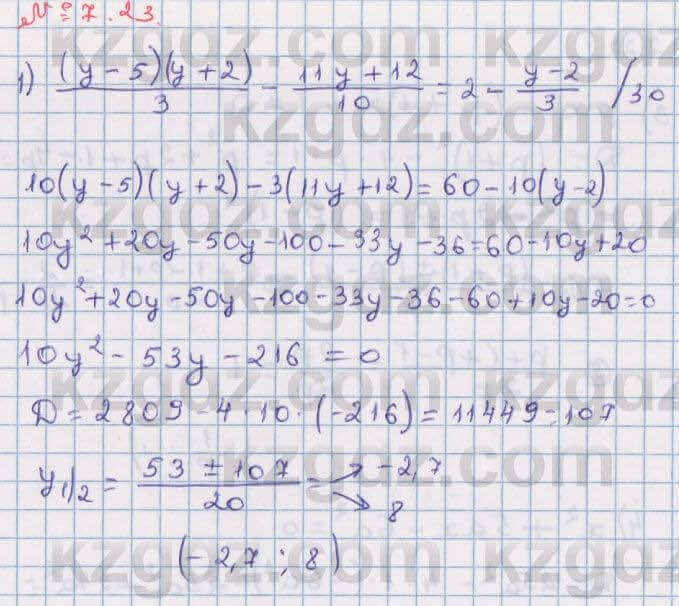 № 7.23.
1) (y-5)(y+2)/3 - 11y+12/10 = 2 - y-2/3 /30
10(y-5)(y+2)-3(11y+12)=60-10(y-2)
10y²+20y-50y-100-33y-36=60-10y+20
10y²+20y-50y-100-33y-36-60+10y-20=0
10y²-53y-216=0
D=2809-4·10·(-216)=11449=107
y1/2 = 53±107/20 = -2,7
8
(-2,7; 8)
kzgdz.com
kzgdz.com
kzgdz.com
kzgdz.com
kzgdz.com
kzgdz.com
kzgdz.com
kzgdz.com